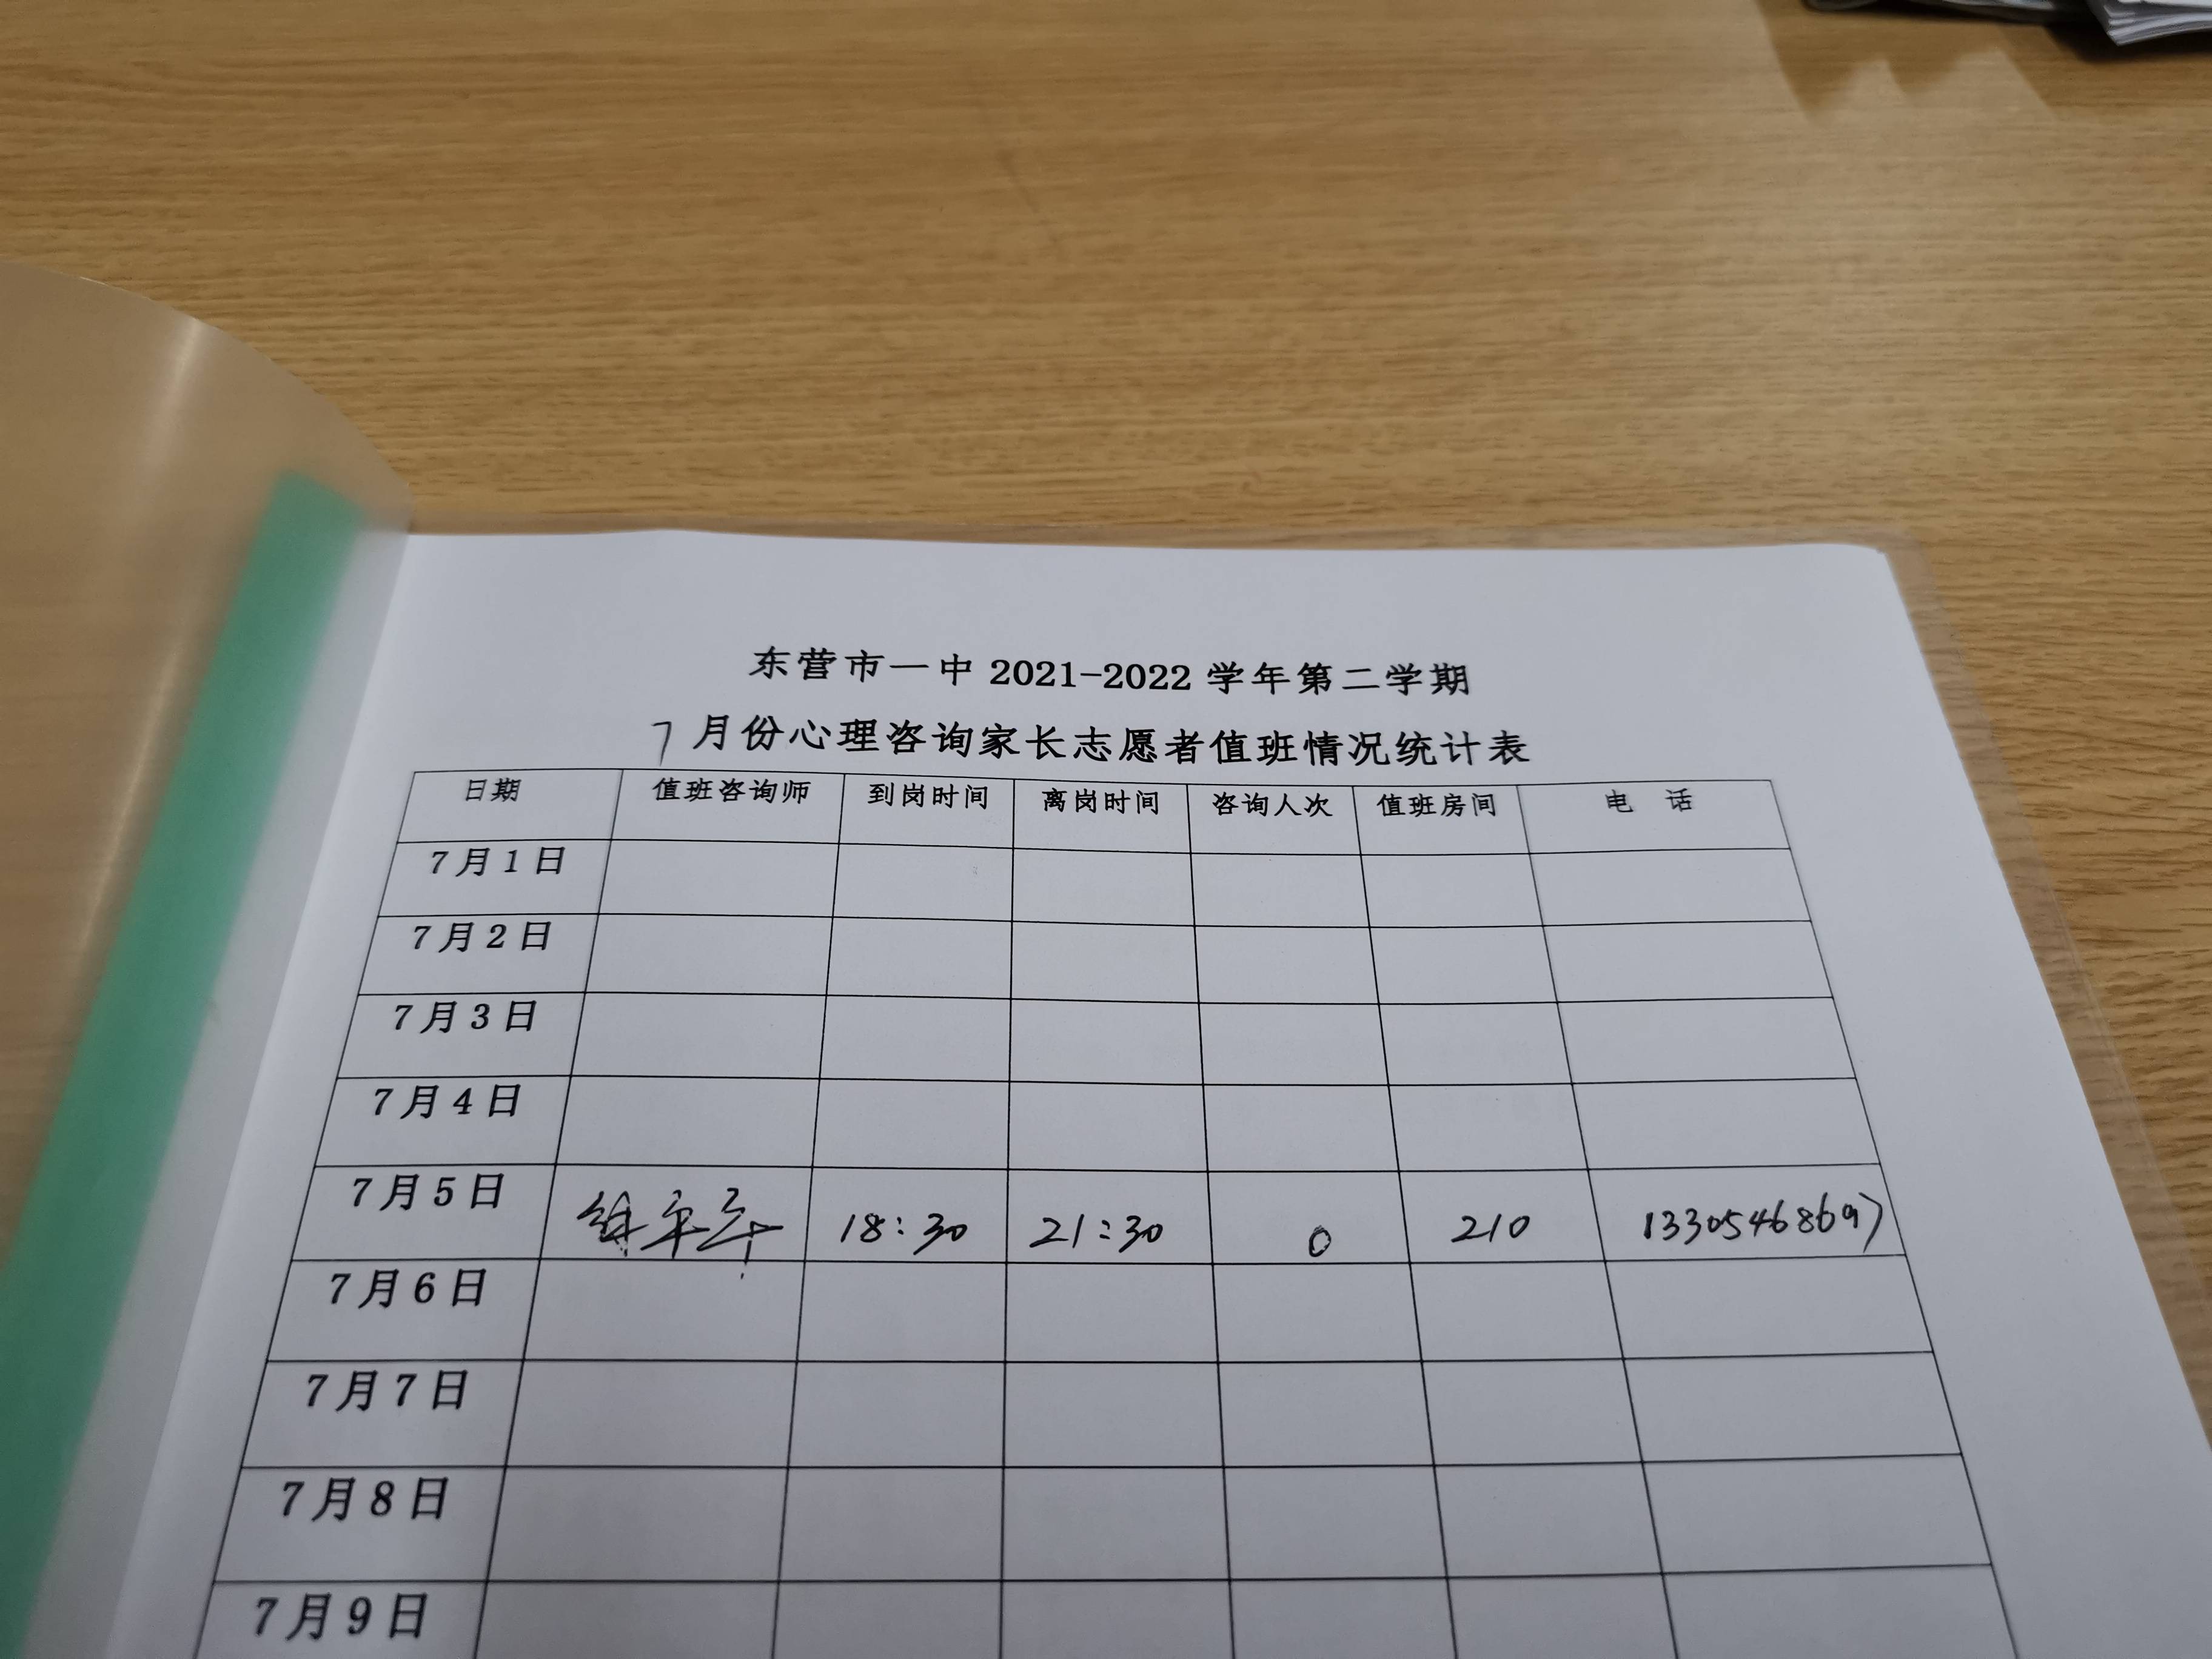 东营市一中 2021-2022 学年第二学期
7 月份心理咨询家长志愿者值班情况统计表
日期 值班咨询师 到岗时间 离岗时间 咨询人次 值班房间 电 话
7月1日
7月2日
7月3日
7月4日
7月5日 18:30 21:30 0 210 13305468697
7月6日
7月7日
7月8日
7月9日